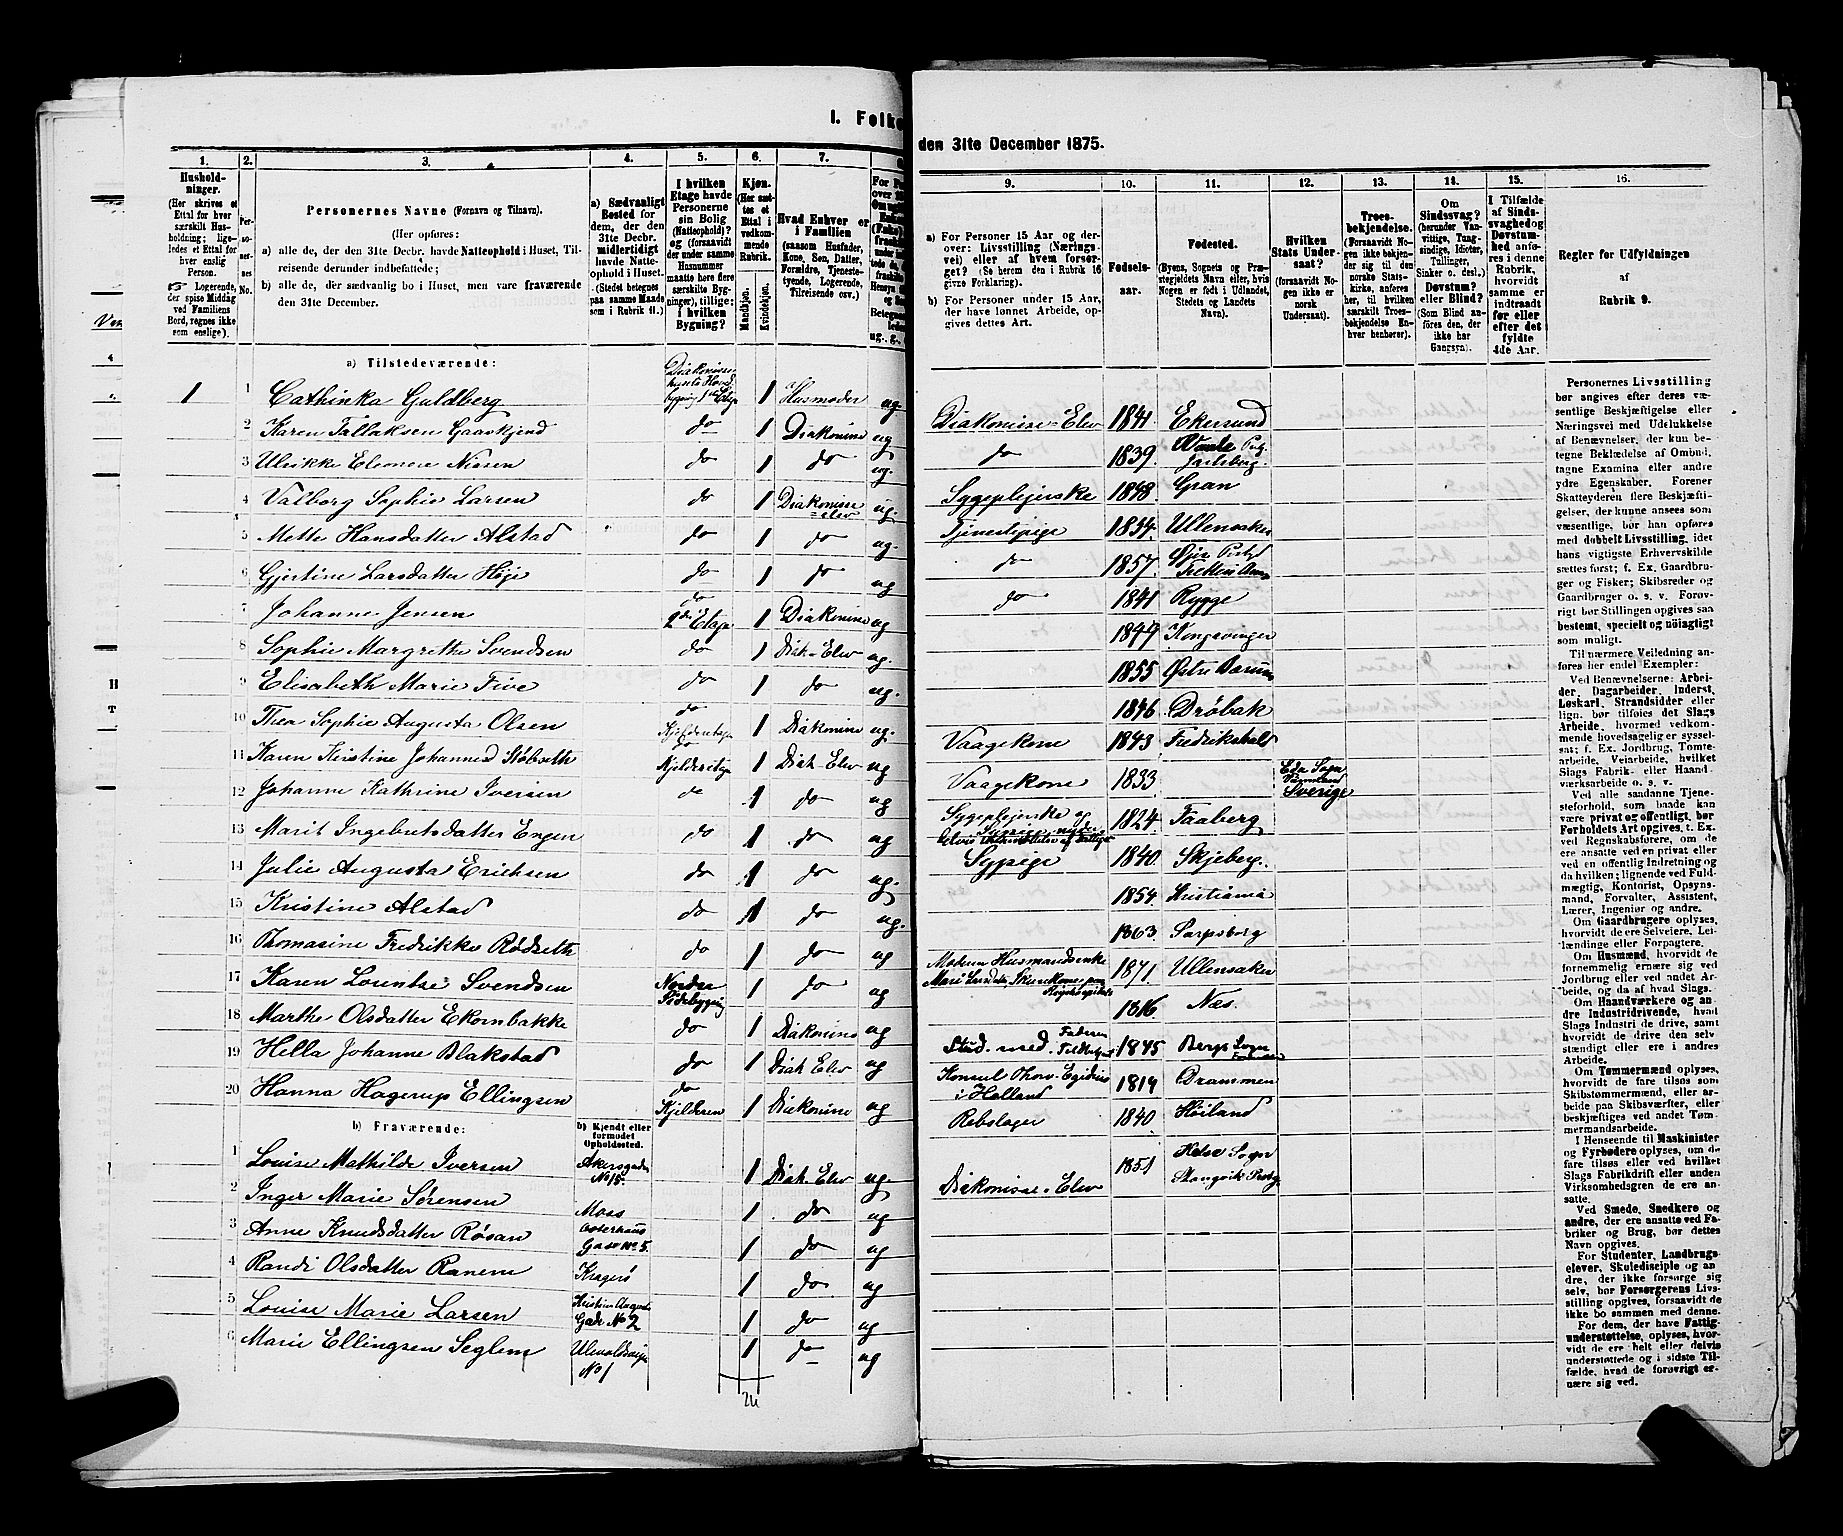 I. Folke
den 31te December 1875.
1. 2. 3. 4. 5. 6. 7.
Husholdninger.
(Her skrives et
Ettal for hver
særskilt Husholdning;
ligeledes
et Ettal for
hver enslig
Person.
☞ Logerende,
der spise Middag
ved Familiens
Bord, regnes ikke
som enslige).
Personernes No.
Personernes Navne (Fornavn og Tilnavn).
(Her opføres:
a) alle de, der den 31te Decbr. havde Natteophold i Huset, Tilreisende derunder indbefattede;
b) alle de, der sædvanlig bo i Huset, men vare fraværende
den 31te December.
a) Sædvanligt
Bosted for
dem, der den
31te Decbr.
midlertidigt
havde Natteophold
i Huset.
(Stedet betegnes
paa samme Maade
som i Rubrik 11.)
I hvilken
Etage havde
Personerne
sin Bolig
(Natteophold)?
og (forsaavidt
der under samme
Husnummer
maatte høre flere
særskilte Bygninger),
tillige:
i hvilken
Bygning?
Kjøn.
(Her sættes
et
Ettal i
vedkommende
Rubrik.
Mandkjøn.
Kvindekjøn.
Hvad Enhver er
i Familien
(saasom Husfader,
Kone, Søn, Datter,
Forældre, Tjenestetyende,
Logerende,
Tilreisende osv.)
9. 10. 11. 12. 13. 14. 15. 16.
a) For Personer 15 Aar og derover:
Livsstilling (Næringsvei)
eller af hvem forsørget?
(Se herom den i Rubrik 16
givne Forklaring).
b) For Personer under 15 Aar,
der have lønnet Arbeide, opgives
dettes Art.
Fødselsaar.
Fødested.
(Byens, Sognets og Præstegjeldets
Navn eller, hvis
Nogen er født i Udlandet,
Stedets og Landets
Navn).
Hvilken
Stats Undersaat?
(forsaavidt Nogen
ikke er
norsk
Undersaat).
Troesbekjendelse.
(Forsaavidt Nogen
ikke bekjender
sig til den
norske Statskirke,
anføres
her, til hvilken
særskilt Troesbekjendelse
Enhver
henhører).
Om
Sindssvag?
(herunder Vanvittige,
Tungsindige,
Idioter,
Tullinger,
Sinker o. desl.)
Døvstum?
eller Blind?
(Som Blind anføres
den, der
ikke har
Gangsyn).
I Tilfælde
af Sindssvaghed
og
Døvstumhed
anføres
i denne
Rubrik,
hvorvidt
samme er
indtraadt
før eller
efter det
fyldte
4de Aar.
Regler for Udfyldningen
af
Rubrik 9.
a) Tilstedeværende:
1 1 Cathinka Guldberg 1 Husmoder ug.
2 Karen Tallaksen Gaaskjend do 1 Diakonisse ug
3 Ulrikke Eleonore Nissen do 1 do ug.
4 Valborg Sophie Larsen do 1 Diakonisse=elev ug.
5 Mette Hansdatter Alstad do 1 do ug.
6 Gjertine Larsdatter Høje do 1 do ug
7 Johanne Jensen do 2den Etage 1 Diakonisse ug
8 Sophie Margrethe Svendsen do 1 Diak-Elev ug.
9 Elisabeth Marie Five do 1 do ug.
10 Thea Sophie Augusta Olsen do 1 Diakonisse ug.
11 Karen Kristine do Kjelderetage 1 Diak-Elev ug
12 Johanne Kathrine Iversen do 1 do ug
13 Marit Ingebretsdatter Engen do 1 do ug
14 Julie Augusta Erichsen do 1 do ug.
15 Kristine Alstad do 1 do ug.
16 Thomasine Fredrikke Rødseth do 1 do ug
17 Karen Lorentse Svendsen Nordre Sidebygning 1 do ug
18 Marthe Olsdatter Ekornbakke do 1 Diakonisse ug
19 Hella Johanne Blakstad do 1 Diak Elev ug
20 Hanna Hagerup Ellingsen do Kjelderen 1 Diakonisse ug
b) Fraværende:
b) Kjendt eller
formodet
Opholdssted.
1 Louise Mathilde Iversen Akersgaden No 15. 1 Diak Elev ug
2 Inger Marie Sørensen Moss 1 do ug
3 Anne Knudsdatter Røsan Osterhaus Gade No 5. 1 do ug
4 Randi Olsdatter Ranem Kragerø 1 do ug
5 Louise Marie Larsen Gade No 2 1 do ug
6 Marie Ellingsen Seglem Ulevoldsveien No 1 1 do ug
26
Diakonisse=Elev 1841. Ekersund
do 1839. Jarlsberg.
Sygeplejerske 1848. Gran
Tjenestepige 1854. Ullensaker
do 1857.
do 1841 Rygge
1849. Kongsvinger
1855. Østre
1846. Drøbak
Vaagekone 1843. Fredrikshald
Vaagekone 1833. Eda Sogn Sverige
Sygeplejerske 1824. Faaberg
Sypige 1840. Skjeberg.
1854. Kristiania
1863. Sarpsborg
1871. Ullensaker
1816 Næs.
Stud. med. 1845 Berg Sogn
Konsul Thor. Egidius i Holland 1814 Drammen
Rebslager 1840. Høiland
Diakonisse-Elev 1851 Sogn Stangvik Prstg.
Personernes Livsstilling
bør angives efter deres væsentlige
Beskjæftigelse eller
Næringsvei med Udelukkelse
af Benævnelser, der kun betegne
Beklædelse af Ombud,
tagne Examina eller andre
ydre Egenskaber. Forener
Skatteyderen flere Beskjæftigelser,
der kunne ansees som
væsentlige, bør han opføres
med dobbelt Livsstilling, idet
hans vigtigste Erhvervskilde
sættes først; f. Ex. Gaardbruger
og Fisker; Skibsreder og
Gaardbruger o. s. v. Forøvrigt
bør Stillingen opgives saa
bestemt, specielt og nöiagtigt
som muligt.
Til nærmere Veiledning anføres
her endel Exempler:
Ved Benævnelserne: Arbeider,
Dagarbeider, Inderst,
Løskarl, Strandsidder eller
lign. bør tilføies det Slags
Arbeide, hvormed vedkommende
hovedsagelig er sysselsat;
f. Ex. Jordbrug, Tomtearbeide,
Veiarbeide, hvilket
Slags Fabrik- eller Haandværksarbeide
o. s. v.
Ved alle saadanne Tjenesteforhold,
som baade kan
være privat og offentligt, bør
Forholdets Art opgives, t. Ex.
ved Regnskabsførere, om de
ere ansatte ved en privat eller
ved en offentlig Indretning og
da hvilken; lignende ved Fuldmægtig,
Kontorist, Opsynsmand,
Forvalter, Assistent,
Lærer, Ingeniør og andre.
Om Gaardbrugere oplyses,
hvorvidt de ere Selveiere, Leilændinge
eller Forpagtere.
Om Husmænd, hvorvidt de
fornemmelig ernære sig ved
Jordbrug eller ved andet Arbeide,
og da af hvad Slags.
Om Haandværkere og andre
Industridrivende, hvad
Slags Industri de drive, samt
hvorvidt de drive den selvstændigt
eller ere i andres
Arbeide.
Om Tømmermænd oplyses,
hvorvidt de fare tilsøs som
Skibstømmermænd, eller arbeide
paa Skibsværfter, eller
beskjæftiges ved andet Tømmermandsarbeide.
I Henseende til Maskinister
og Fyrbødere oplyses, om de
fare tilsøs eller ved hvilket
Slags Fabrikdrift eller anden
Virksomhedsgren de ere ansatte.
Ved Smede, Snedkere og
andre, der ere ansatte ved Fabriker
og Brug, bør dettes
Navn opgives.
For Studenter, Landbrugselever,
Skoledisciple og andre,
der ikke forsørge sig
selv, bør Forsørgerens Livsstilling
opgives, forsaavidt de
ikke bo sammen med denne.
For dem, der have Fattigunderstøttelse,
oplyses, hvorvidt
de ere helt eller delvis
understøttede og i sidste Tilfælde,
hvad de forøvrigt ernære
sig ved.